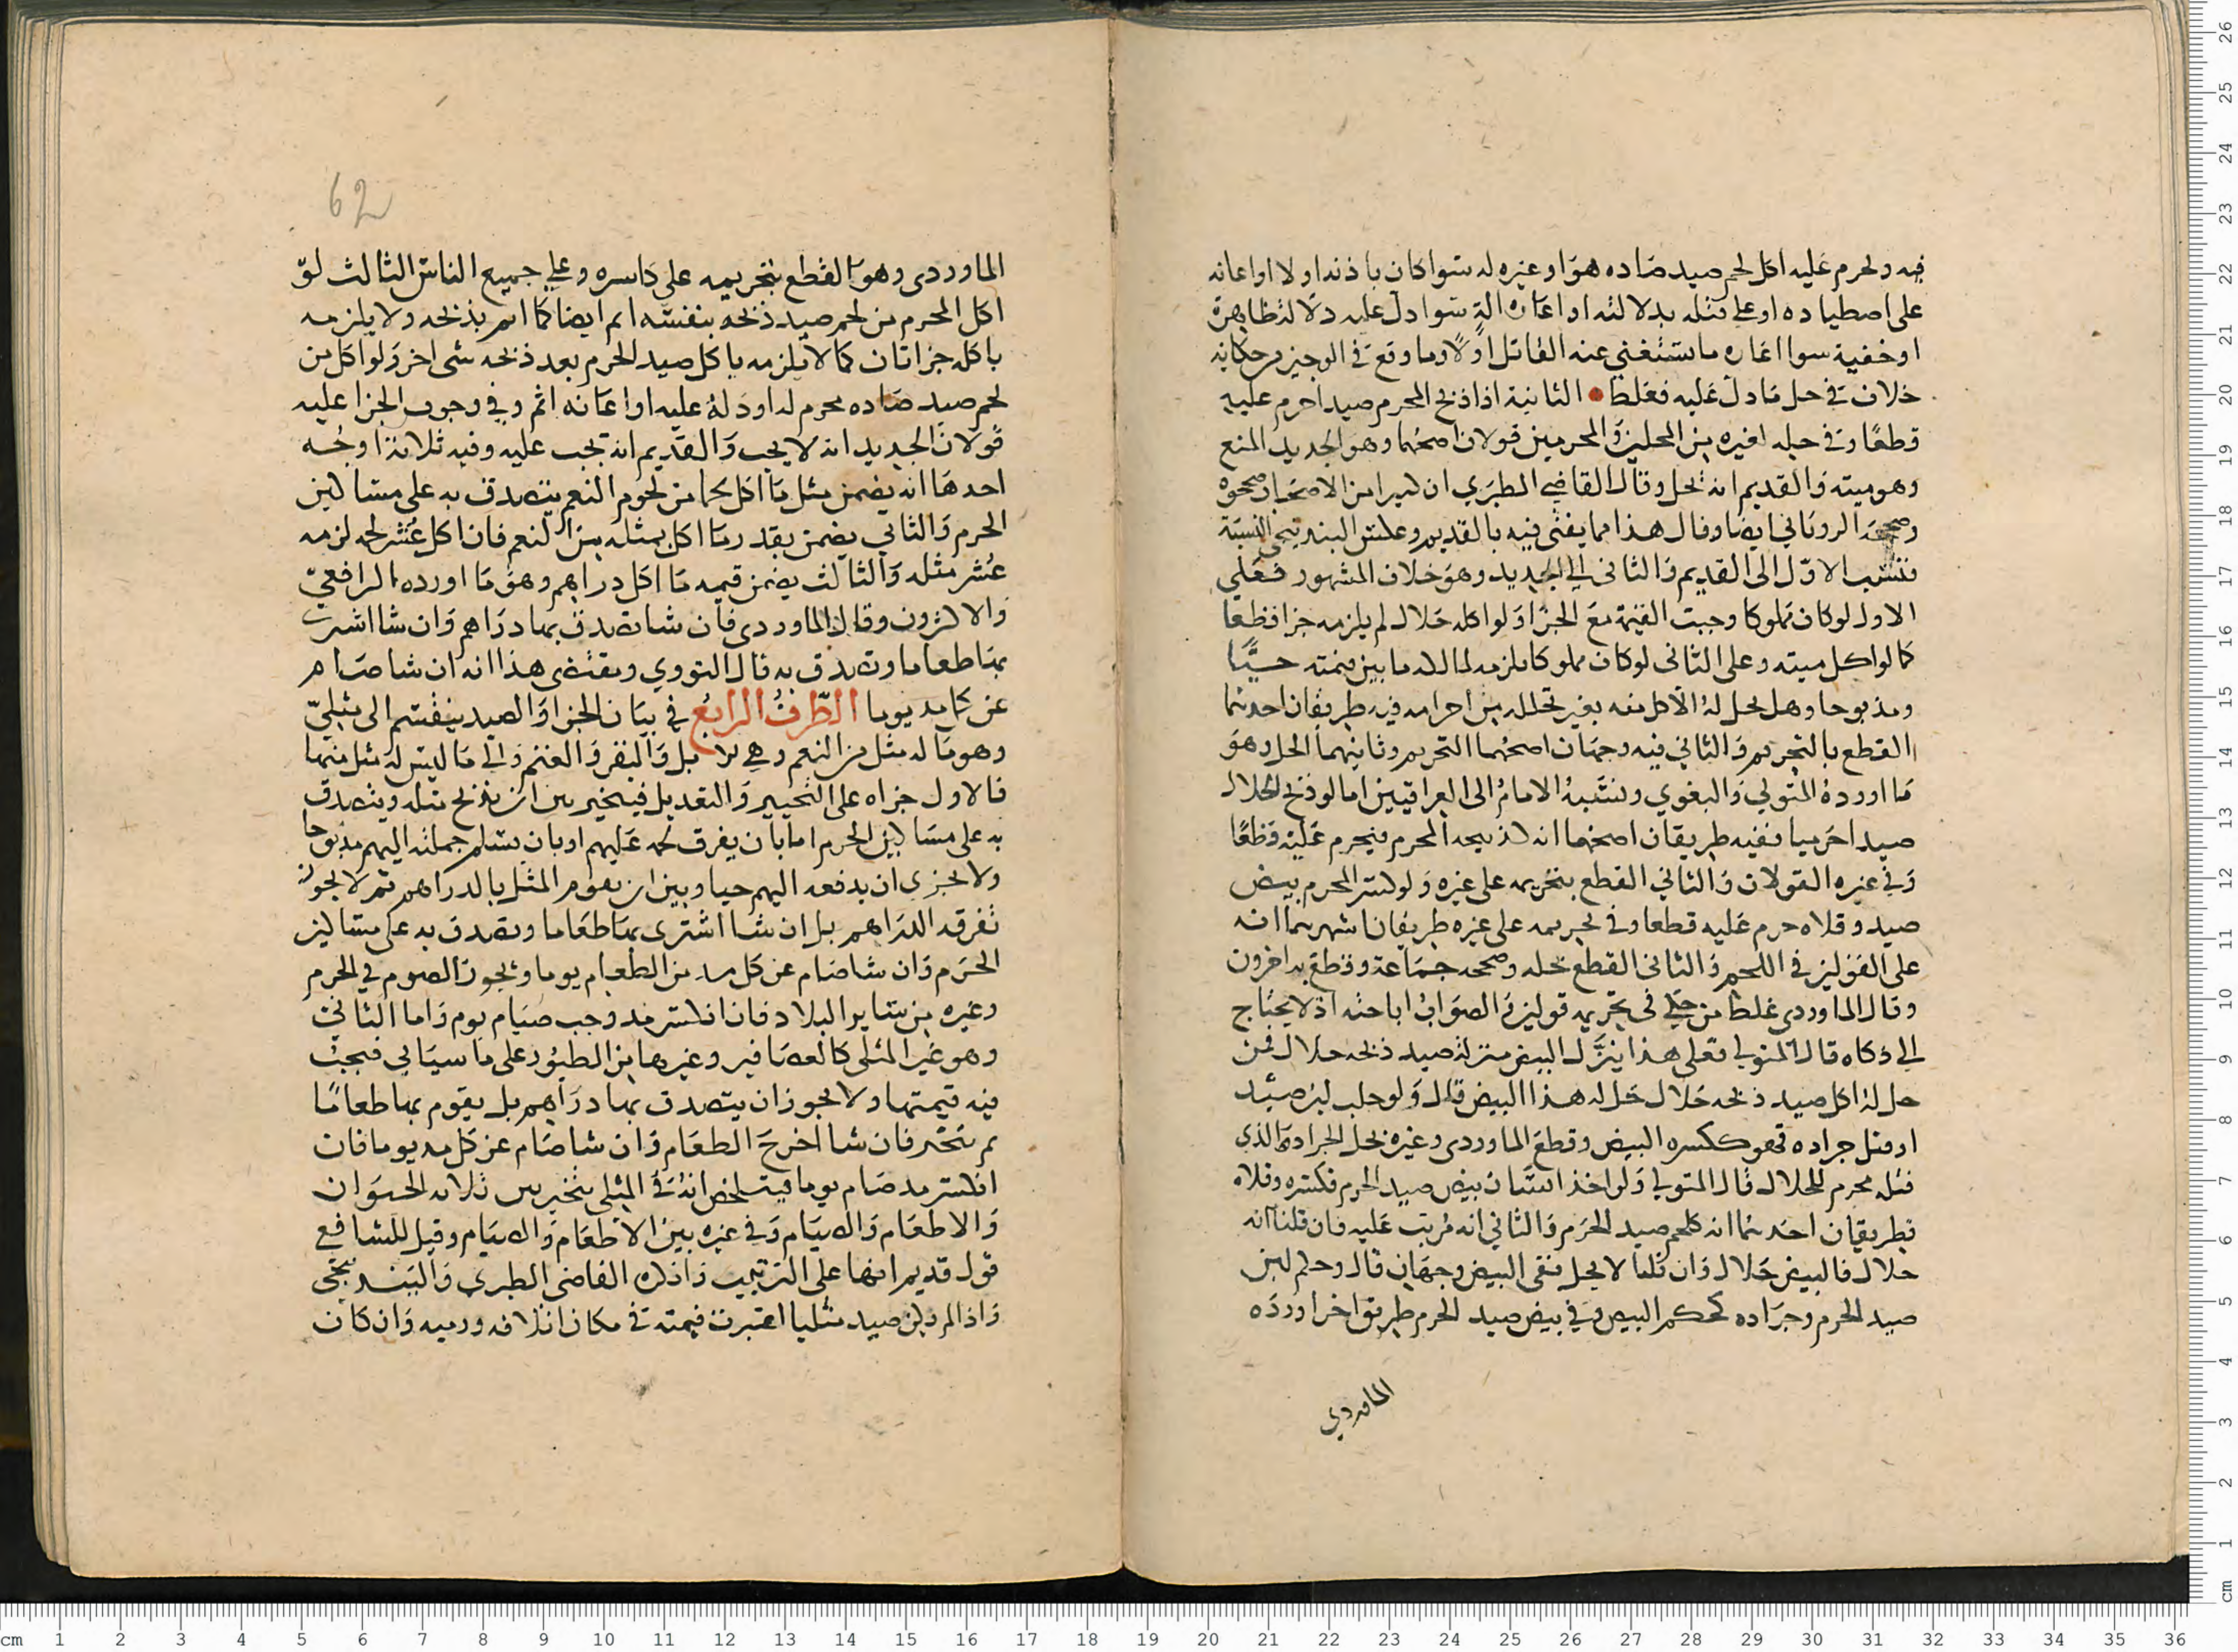 فيه ويحرم عليه اكل لحم صيد صاده هو او غيره له سوا كان باذنه او لا او اعانه
على اصطياده او على قتله بدلالته او اعاره الة سوا دل عليه دلالة ظاهرة
او خفية سوا اعاره ما يستغني عنه القاتل او لا وما وقع في الوجيز من حكاية
خلاف في حل ما دل عليه فغلط • الثانية اذا ذبح المحرم صيدا حرم عليه
قطعا وفي حله لغيره من المحلين والمحرمين قولان اصحهما وهو الجديد المنع
وهو ميتة والقديم انه يحل وقال القاضي الطبري ان كثيرا من الاصحاب صححوه
وصححه الروياني ايضا وقال هذا مما يفتى فيه بالقديم وعكس البندنيجي النسبة
فنسب الاول الى القديم والثاني الى الجديد وهو خلاف المشهور فعلى
الاول لو كان مملوكا وجبت القيمة مع الجزا ولو اكله حلال لم يلزمه جزا قطعا
كما لو اكل ميته وعلى الثاني لو كان مملوكا يلزمه لمالكه ما بين قيمته حيا
ومذبوحا وهل يحل له الاكل منه بغير تحلله من احرامه فيه طريقان احدهما
القطع بالتحريم والثاني فيه وجهان اصحهما التحريم وثانيهما الحل وهو
ما اورده المتولي والبغوي ونسبه الامام الى العراقيين اما لو ذبح الحلال
صيدا حرميا ففيه طريقان اصحهما انه كذبيحه المحرم فيحرم عليه قطعا
وفي غيره القولان والثاني القطع بتحريمه على غيره ولو كسر المحرم بيض
صيد وقلاه حرم عليه قطعا وفي تحريمه على غيره طريقان اشهرهما انه
على القولين في اللحم والثاني القطع بحله وصححه جماعة وقطع به اخرون
وقال الماوردي غلط من حكى في تحريمه قولين والصواب اباحته اذ لا يحتاج
الى ذكاه قال المتولي فعلى هذا ينزل البيض منزلة صيد ذبحه حلال فمن
حل له اكل صيد ذبحه حلال حل له هذا البيض قال ولو حلب لبن صيد
او قتل جراده فهو ككسره البيض وقطع الماوردي وغيره بحل الجراده الذي
قتله محرم للحلال قال المتولي ولو اخذ انسان بيض صيد الحرم فكسره وقلاه
فطريقان احدهما انه كلحم صيد الحرم والثاني انه مرتب عليه فان قلنا انه
حلال فالبيض حلال وان قلنا لا يحل ففي البيض وجهان قال وحكم لبن
صيد الحرم وجراده كحكم البيض وفي بيض صيد الحرم طريق اخر اورده
الماوردي
62
الماوردي وهو القطع بتحريمه على كاسره وعلى جميع الناس الثالث لو
اكل المحرم من لحم صيد ذبحه بنفسه اثم ايضا كما اثم بذبحه ولا يلزمه
باكله جزا ثان كما لا يلزمه باكل صيد الحرم بعد ذبحه شى اخر ولو اكل من
لحم صيد صاده محرم له او دله عليه او اعانه اثم وفي وجوب الجزا عليه
قولان الجديد انه لا يجب والقديم انه يجب عليه وفيه ثلاثة اوجه
احدها انه يضمن مثل ما اكل لحما من لحوم النعم يتصدق به على مساكين
الحرم والثاني يضمن بقدر ما اكل بمثله من النعم فان اكل عشر لحمه لزمه
عشر مثله والثالث يضمن قيمه ما اكل دراهم وهو ما اورده الرافعي
والاكثرون وقال الماوردي فان شا تصدق بها دراهم وان شا اشترى
بها طعاما وتصدق به قال النووي ويقتضى هذا انه ان شا صام
عن كل مد يوما الطرف الرابع في بيان الجزا والصيد ينقسم الى مثلي
وهو ما له مثل من النعم وهي الابل والبقر والغنم والى ما ليس له مثل منها
فالاول جزاه على التخيير والتعديل فيخير بين ان يذبح مثله ويتصدق
به على مساكين الحرم اما بان يفرق لحمه عليهم او بان يسلم جملته اليهم مذبوحا
ولا يجزي ان يدفعه اليهم حيا وبين ان يقوم المثل بالدراهم ثم لا يجوز
تفرقه الدراهم بل ان شا اشترى بها طعاما وتصدق به على مساكين
الحرم وان شا صام عن كل مد من الطعام يوما ويجوز الصوم في الحرم
وغيره من ساير البلاد فان انكسر مد وجب صيام يوم واما الثاني
وهو غير المثلي كالعصافير وغيرها من الطيور على ما سياتي فيجب
فيه قيمتها ولا يجوز ان يتصدق بها دراهم بل يقوم بها طعاما
ثم يتخير فان شا اخرج الطعام وان شا صام عن كل مد يوما فان
انكسر مد صام يوما فيتلخص انه في المثلى يتخير بين ثلاثه الحيوان
والاطعام والصيام وفي غيره بين الاطعام والصيام وقيل للشافعي
قول قديم انها على الترتيب واذكره القاضي الطبري والبندنيجي
واذا لم يكن صيد مثليا اعتبرت قيمته في مكان اتلافه ورميه وان كان